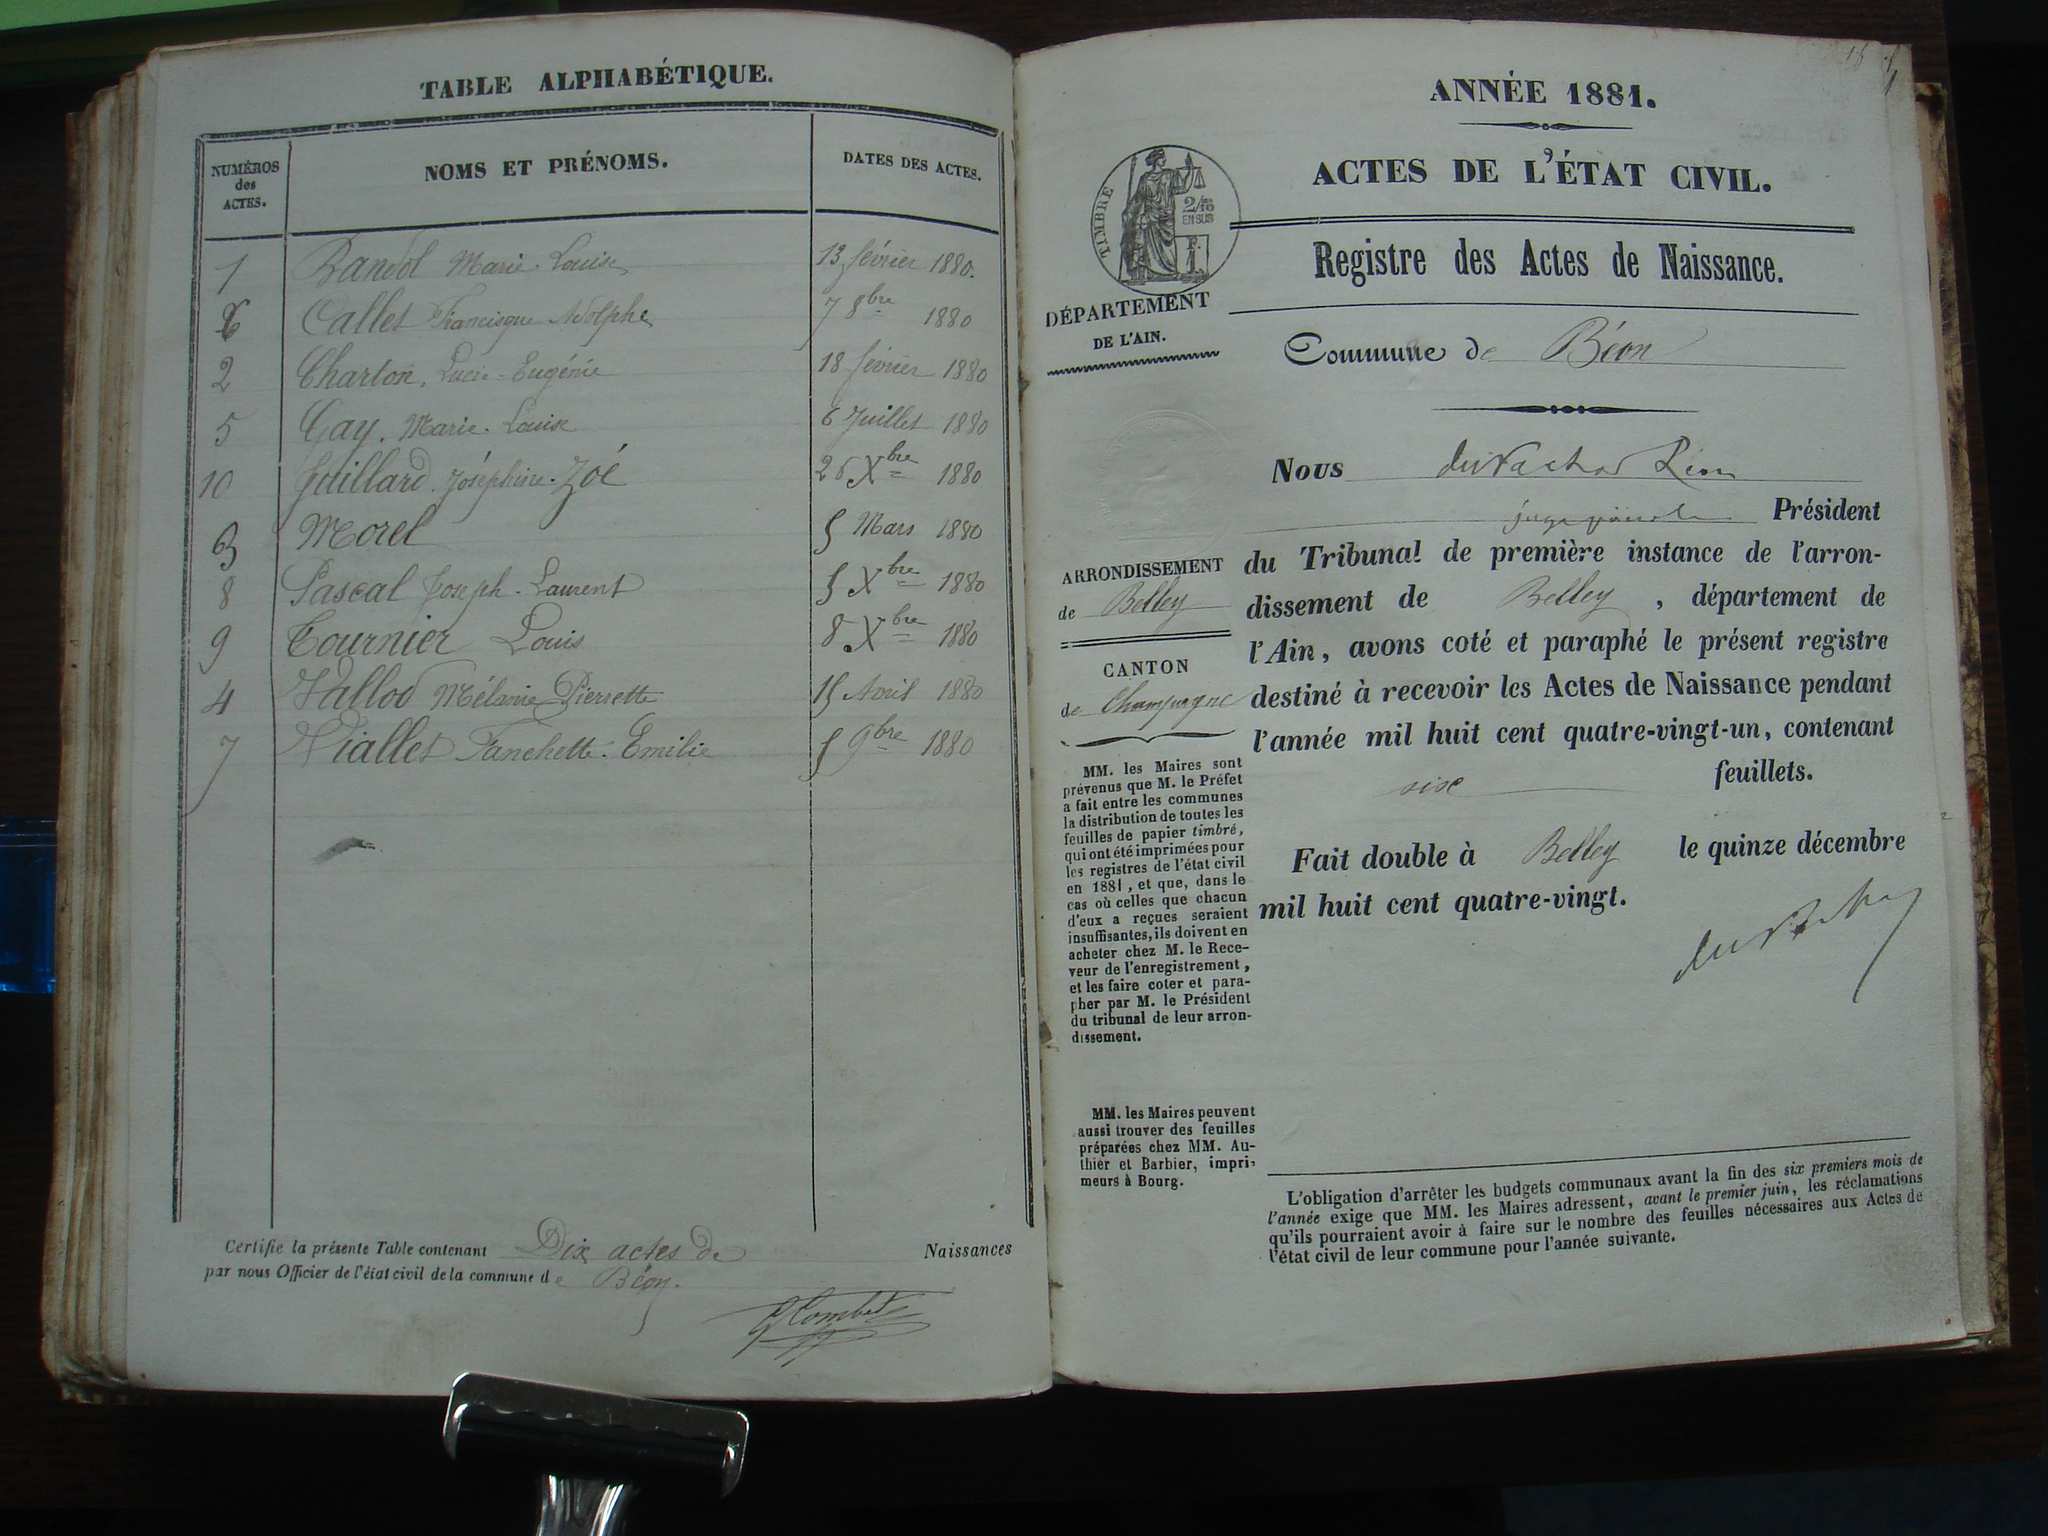 TABLE ALPHABÉTIQUE.
NUMÉROS des ACTES.
NOMS ET PRÉNOMS.
DATES DES ACTES.
1 Bandol Marie-Louise 13 février 1880.
6 Callet Francisque Adolphe 7 8bre 1880
2 Charton, Lucie-Eugénie 18 février 1880
5 Gay, Marie-Louise 6 Juillet 1880
10 Guillard, Joséphine-Zoé 26 Xbre 1880
3 Morel 5 Mars 1880
8 Pascal Joseph-Laurent 5 Xbre 1880
9 Tournier Louis 8 Xbre 1880
4 Vallod Mélanie Pierrette 15 Avril 1880
7 Viallet Fanchette-Emilie 5 9bre 1880
Certifie la présente Table contenant Dix actes de Naissances
par nous Officier de l'état civil de la commune de Béon.
ANNÉE 1881.
ACTES DE L'ÉTAT CIVIL.
TIMBRE
2/10
EN SUS
Registre des Actes de Naissance.
DÉPARTEMENT
DE L'AIN.
Commune de Béon
Nous Léon
Président
du Tribunal de première instance de l'arron-
dissement de Belley, département de
l'Ain, avons coté et paraphé le présent registre
destiné à recevoir les Actes de Naissance pendant
l'année mil huit cent quatre-vingt-un, contenant
six feuillets.
Fait double à Belley le quinze décembre
mil huit cent quatre-vingt.
ARRONDISSEMENT
de Belley
CANTON
de Champagne
MM. les Maires sont
prévenus que M. le Préfet
a fait entre les communes
la distribution de toutes les
feuilles de papier timbré,
qui ont été imprimées pour
les registres de l'état civil
en 1881, et que, dans le
cas où celles que chacun
d'eux a reçues seraient
insuffisantes, ils doivent en
acheter chez M. le Rece-
veur de l'enregistrement,
et les faire coter et para-
pher par M. le Président
du tribunal de leur arron-
dissement.
MM. les Maires peuvent
aussi trouver des feuilles
préparées chez MM. Au-
thier et Barbier, impri-
meurs à Bourg.
L'obligation d'arrêter les budgets communaux avant la fin des six premiers mois de
l'année exige que MM. les Maires adressent, avant le premier juin, les réclamations
qu'ils pourraient avoir à faire sur le nombre des feuilles nécessaires aux Actes de
l'état civil de leur commune pour l'année suivante.